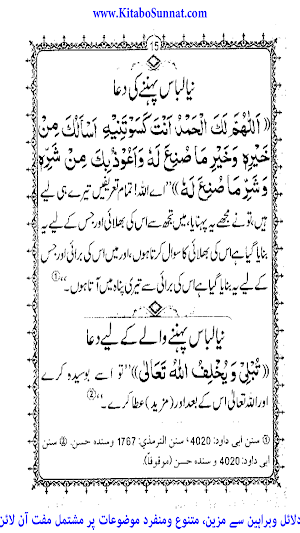 www.KitaboSunnat.com
15
نیا لباس پہننے کی دعا
«اَللّٰهُمَّ لَكَ الْحَمْدُ اَنْتَ كَسَوْتَنِيْهِ اَسْاَلُكَ مِنْ
خَيْرِهٖ وَخَيْرِ مَا صُنِعَ لَهٗ وَاَعُوْذُ بِكَ مِنْ شَرِّهٖ
وَشَرِّ مَا صُنِعَ لَهٗ» ”اے اللہ! تمام تعریفیں تیرے ہی لیے
ہیں، تو نے مجھے یہ پہنایا، میں تجھ سے اس کی بھلائی اور جس کے لیے یہ
بنایا گیا ہے اس کی بھلائی کا سوال کرتا ہوں، اور میں اس کی برائی اور جس
کے لیے یہ بنایا گیا ہے اس کی برائی سے تیری پناہ میں آتا ہوں۔“①
نیا لباس پہننے والے کے لیے دعا
«تُبْلِيْ وَيُخْلِفُ اللّٰهُ تَعَالٰى» ”تو اسے بوسیدہ کرے
اور اللہ تعالیٰ اس کے بعد اور (مزید) عطا کرے۔“②
① سنن ابی داود: 4020، سنن الترمذی: 1767 وسندہ حسن. ② سنن
ابی داود: 4020 و سندہ حسن (موقوفاً).
دلائل وبراہین سے مزین، متنوع ومنفرد موضوعات پر مشتمل مفت آن لائن